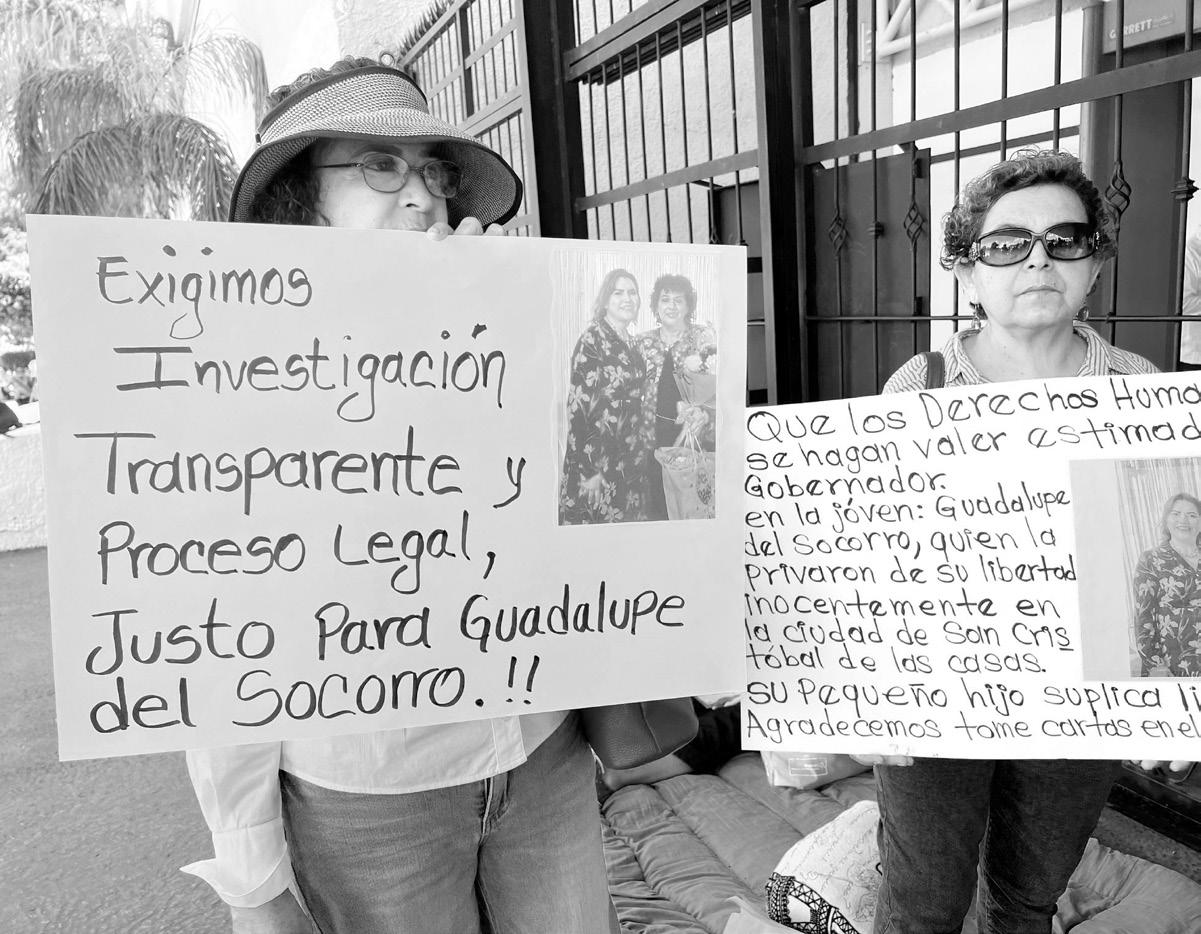 GARRETT
Exigimos
Investigación
Transparente y
Proceso Legal,
Justo Para Guadalupe
del Socorro.!!
Que los Derechos Huma
se hagan valer estimad
Gobernador.
en la jóven: Guadalupe
del Socorro, quien la
privaron de su libertad
inocentemente en
la ciudad de San Cris
tóbal de las casas.
su Pequeño hijo suplica
Agradecemos tome cartas en el